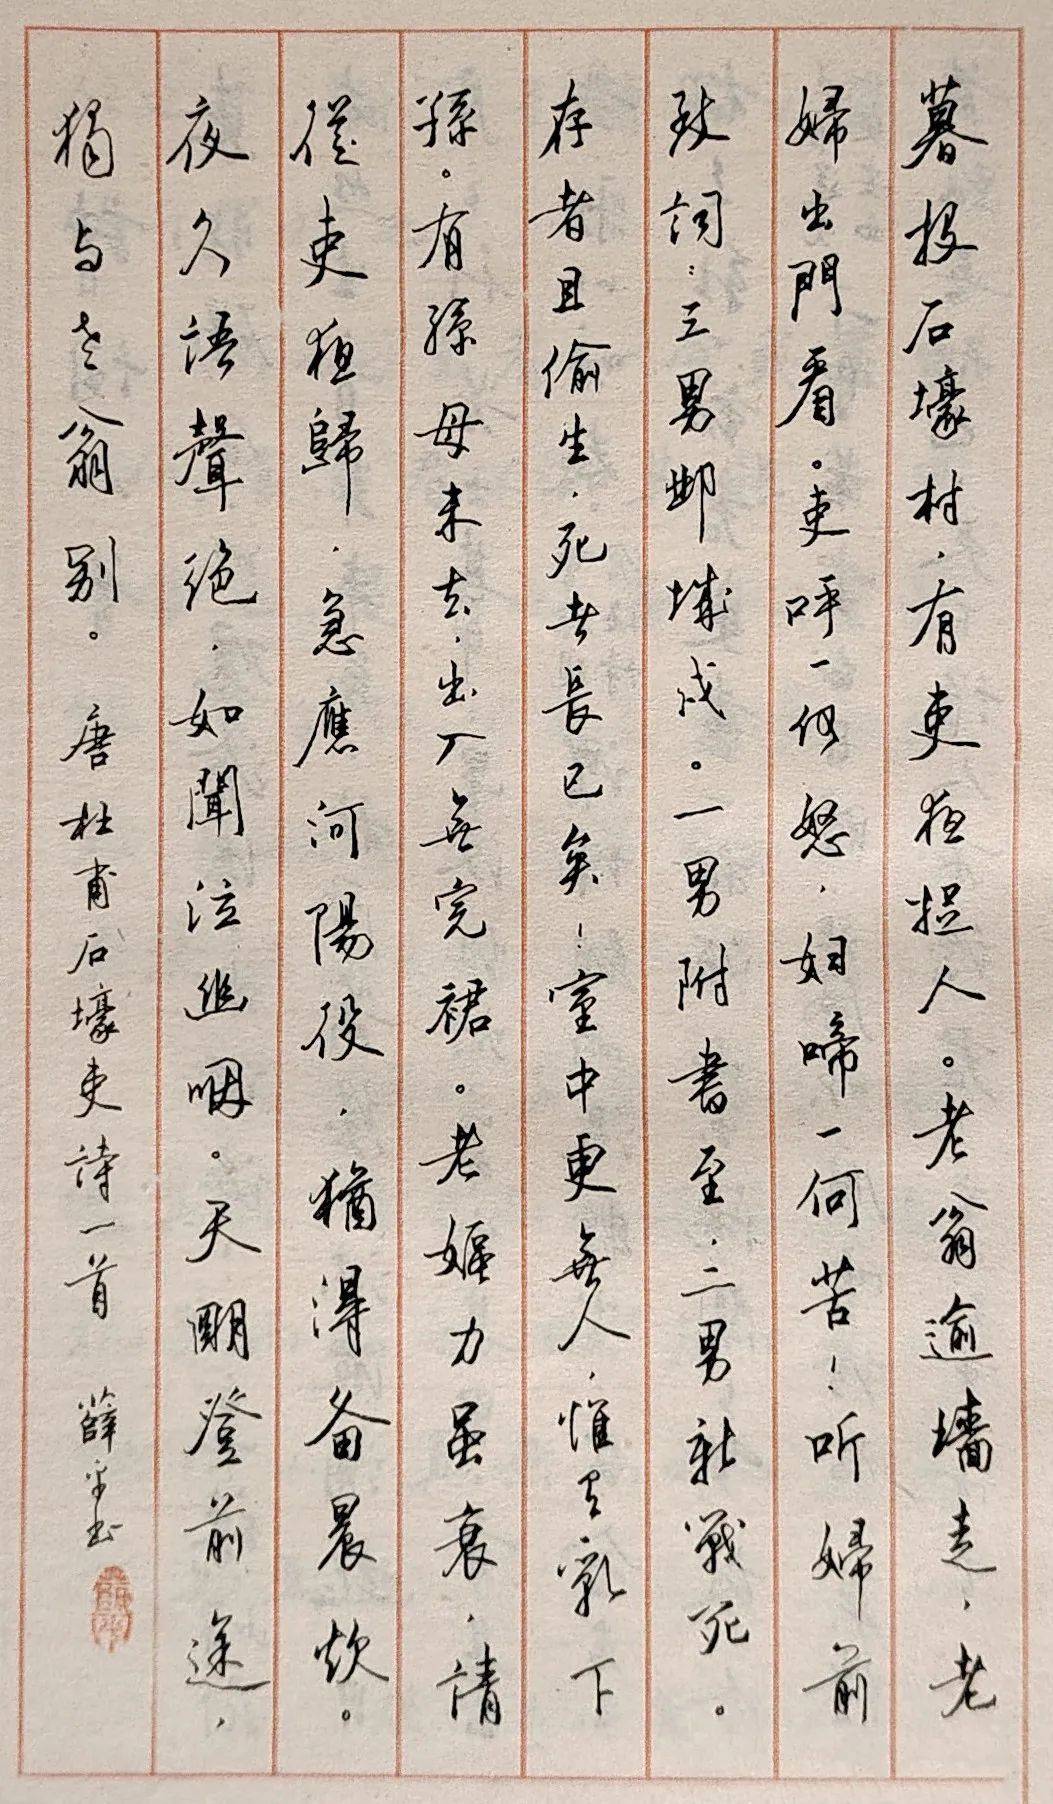 暮投石壕村，有吏夜捉人。老翁逾墙走，老
婦出門看。吏呼一何怒，妇啼一何苦！听婦前
致詞：三男鄴城戍。一男附書至，二男新戰死。
存者且偷生，死者長已矣！室中更無人，惟有乳下
孫。有孫母未去，出入無完裙。老嫗力虽衰，請
從吏夜歸，急應河陽役，猶得备晨炊。
夜久語聲绝，如聞泣幽咽。天明登前途，
獨与老翁别。 唐杜甫石壕吏詩一首 薛平书